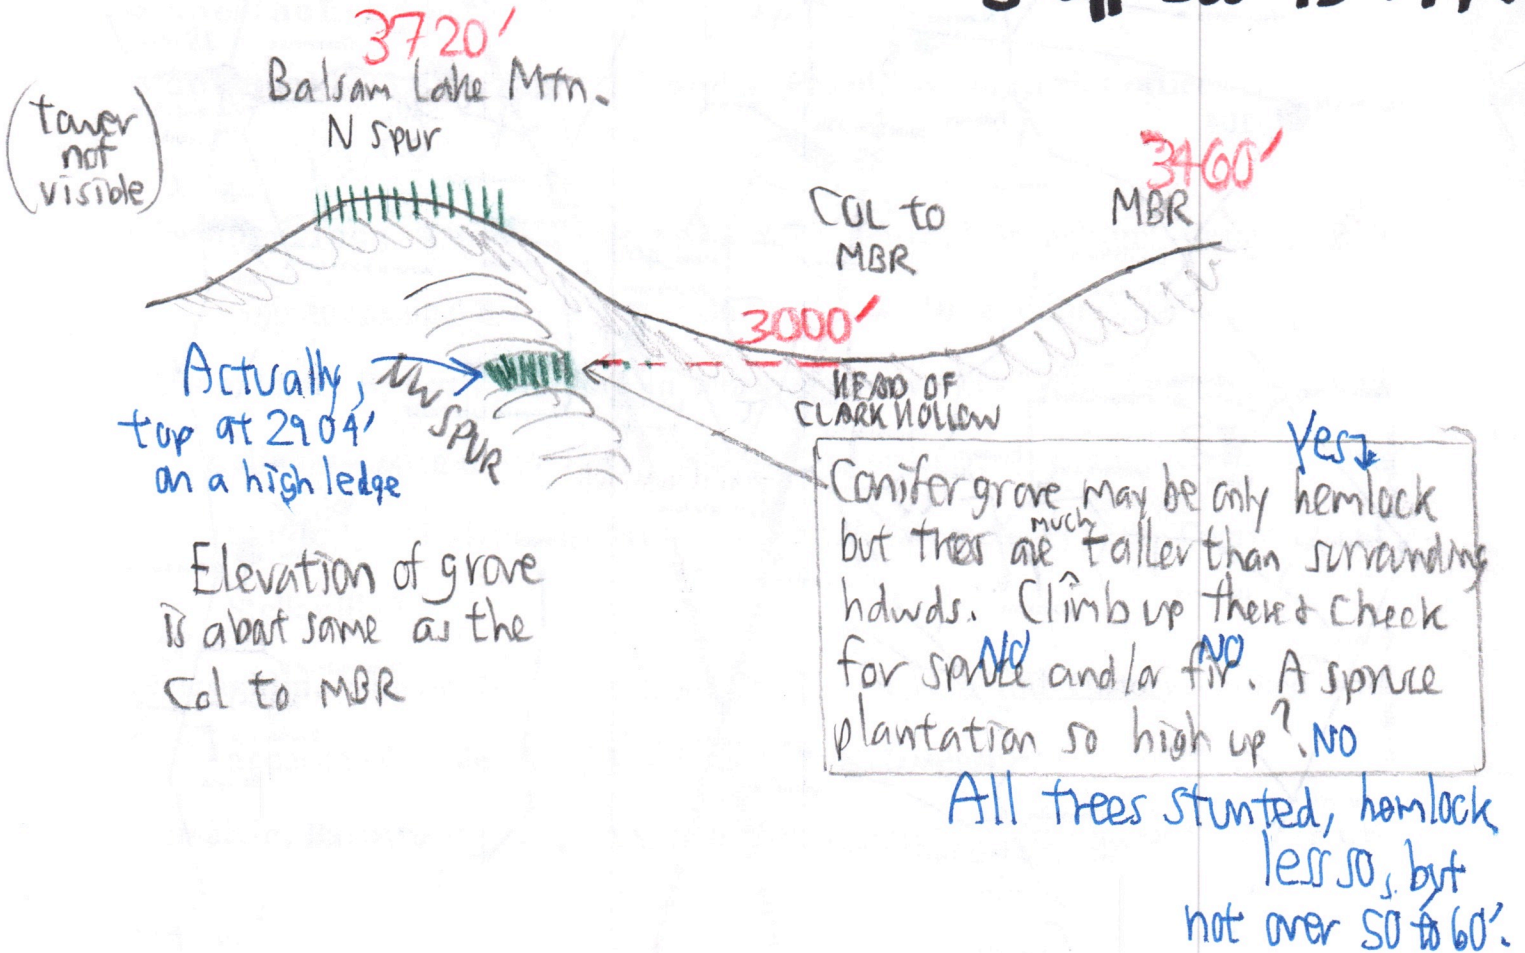 3720'
Balsam Lake Mtn.
N Spur
(tower
not
visible)
3460'
MBR
COL to
MBR
3000'
HEAD OF
CLARK HOLLOW
Actually,
top at 2904'
on a high ledge
NW SPUR
Elevation of grove
is about same as the
Col to MBR
Yes
Conifer grove may be only hemlock
but trees are much taller than surrounding
hdwds. Climb up there & check
for spruce and/or fir. A spruce
NO NO
plantation so high up? NO
All trees stunted, hemlock
less so, but
not over 50 to 60'.